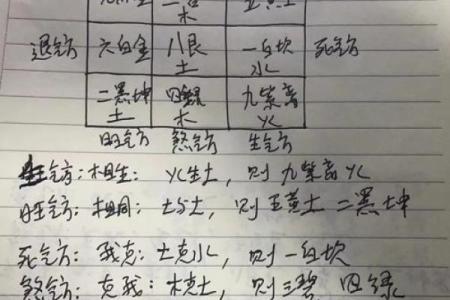 木 土
退气方 六白金 八艮土 一白坎水 死气方
二黑坤土 四绿木 九紫离火
旺气方 煞气方 生气方
生气方:相生:火生土,则九紫离火
旺气方:相同:土与土,则五黄土 二黑坤
死气方:我克:土克水,则一白坎
煞气方:克我:木克土,则三碧 四绿